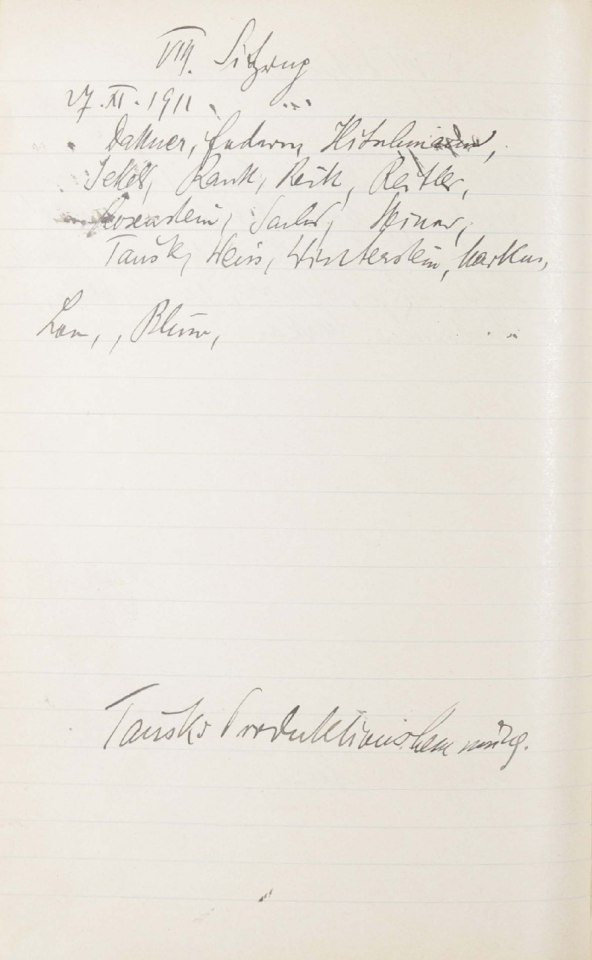 VIII. Sitzung
27.XI.1911
Dattner, Federn, Hitschmann,
Jekels, Rank, Reik, Reitler,
Rosenstein, Sachs, Steiner,
Tausk, Weiss, Winterstein, Markus,
Lou, , Blum,
Tausks Produktionshemmung.